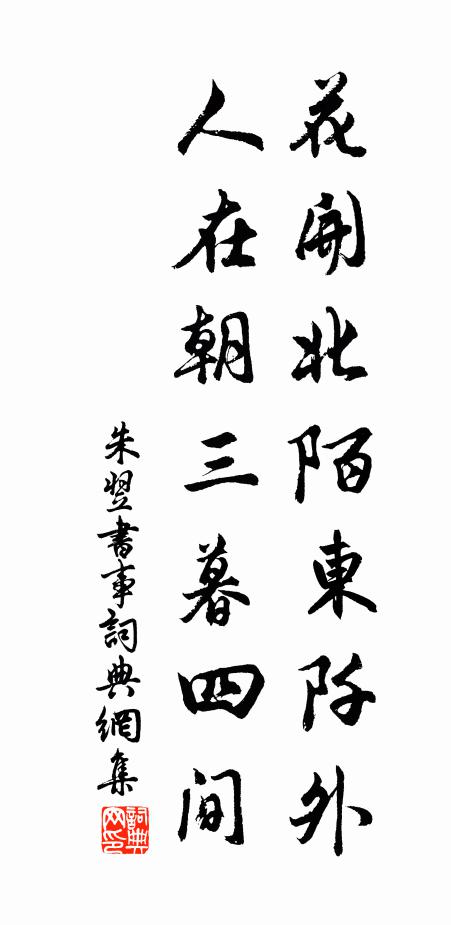 花開北陌東阡外
人在朝三暮四間
朱翌書事詞典網集
詞典网印